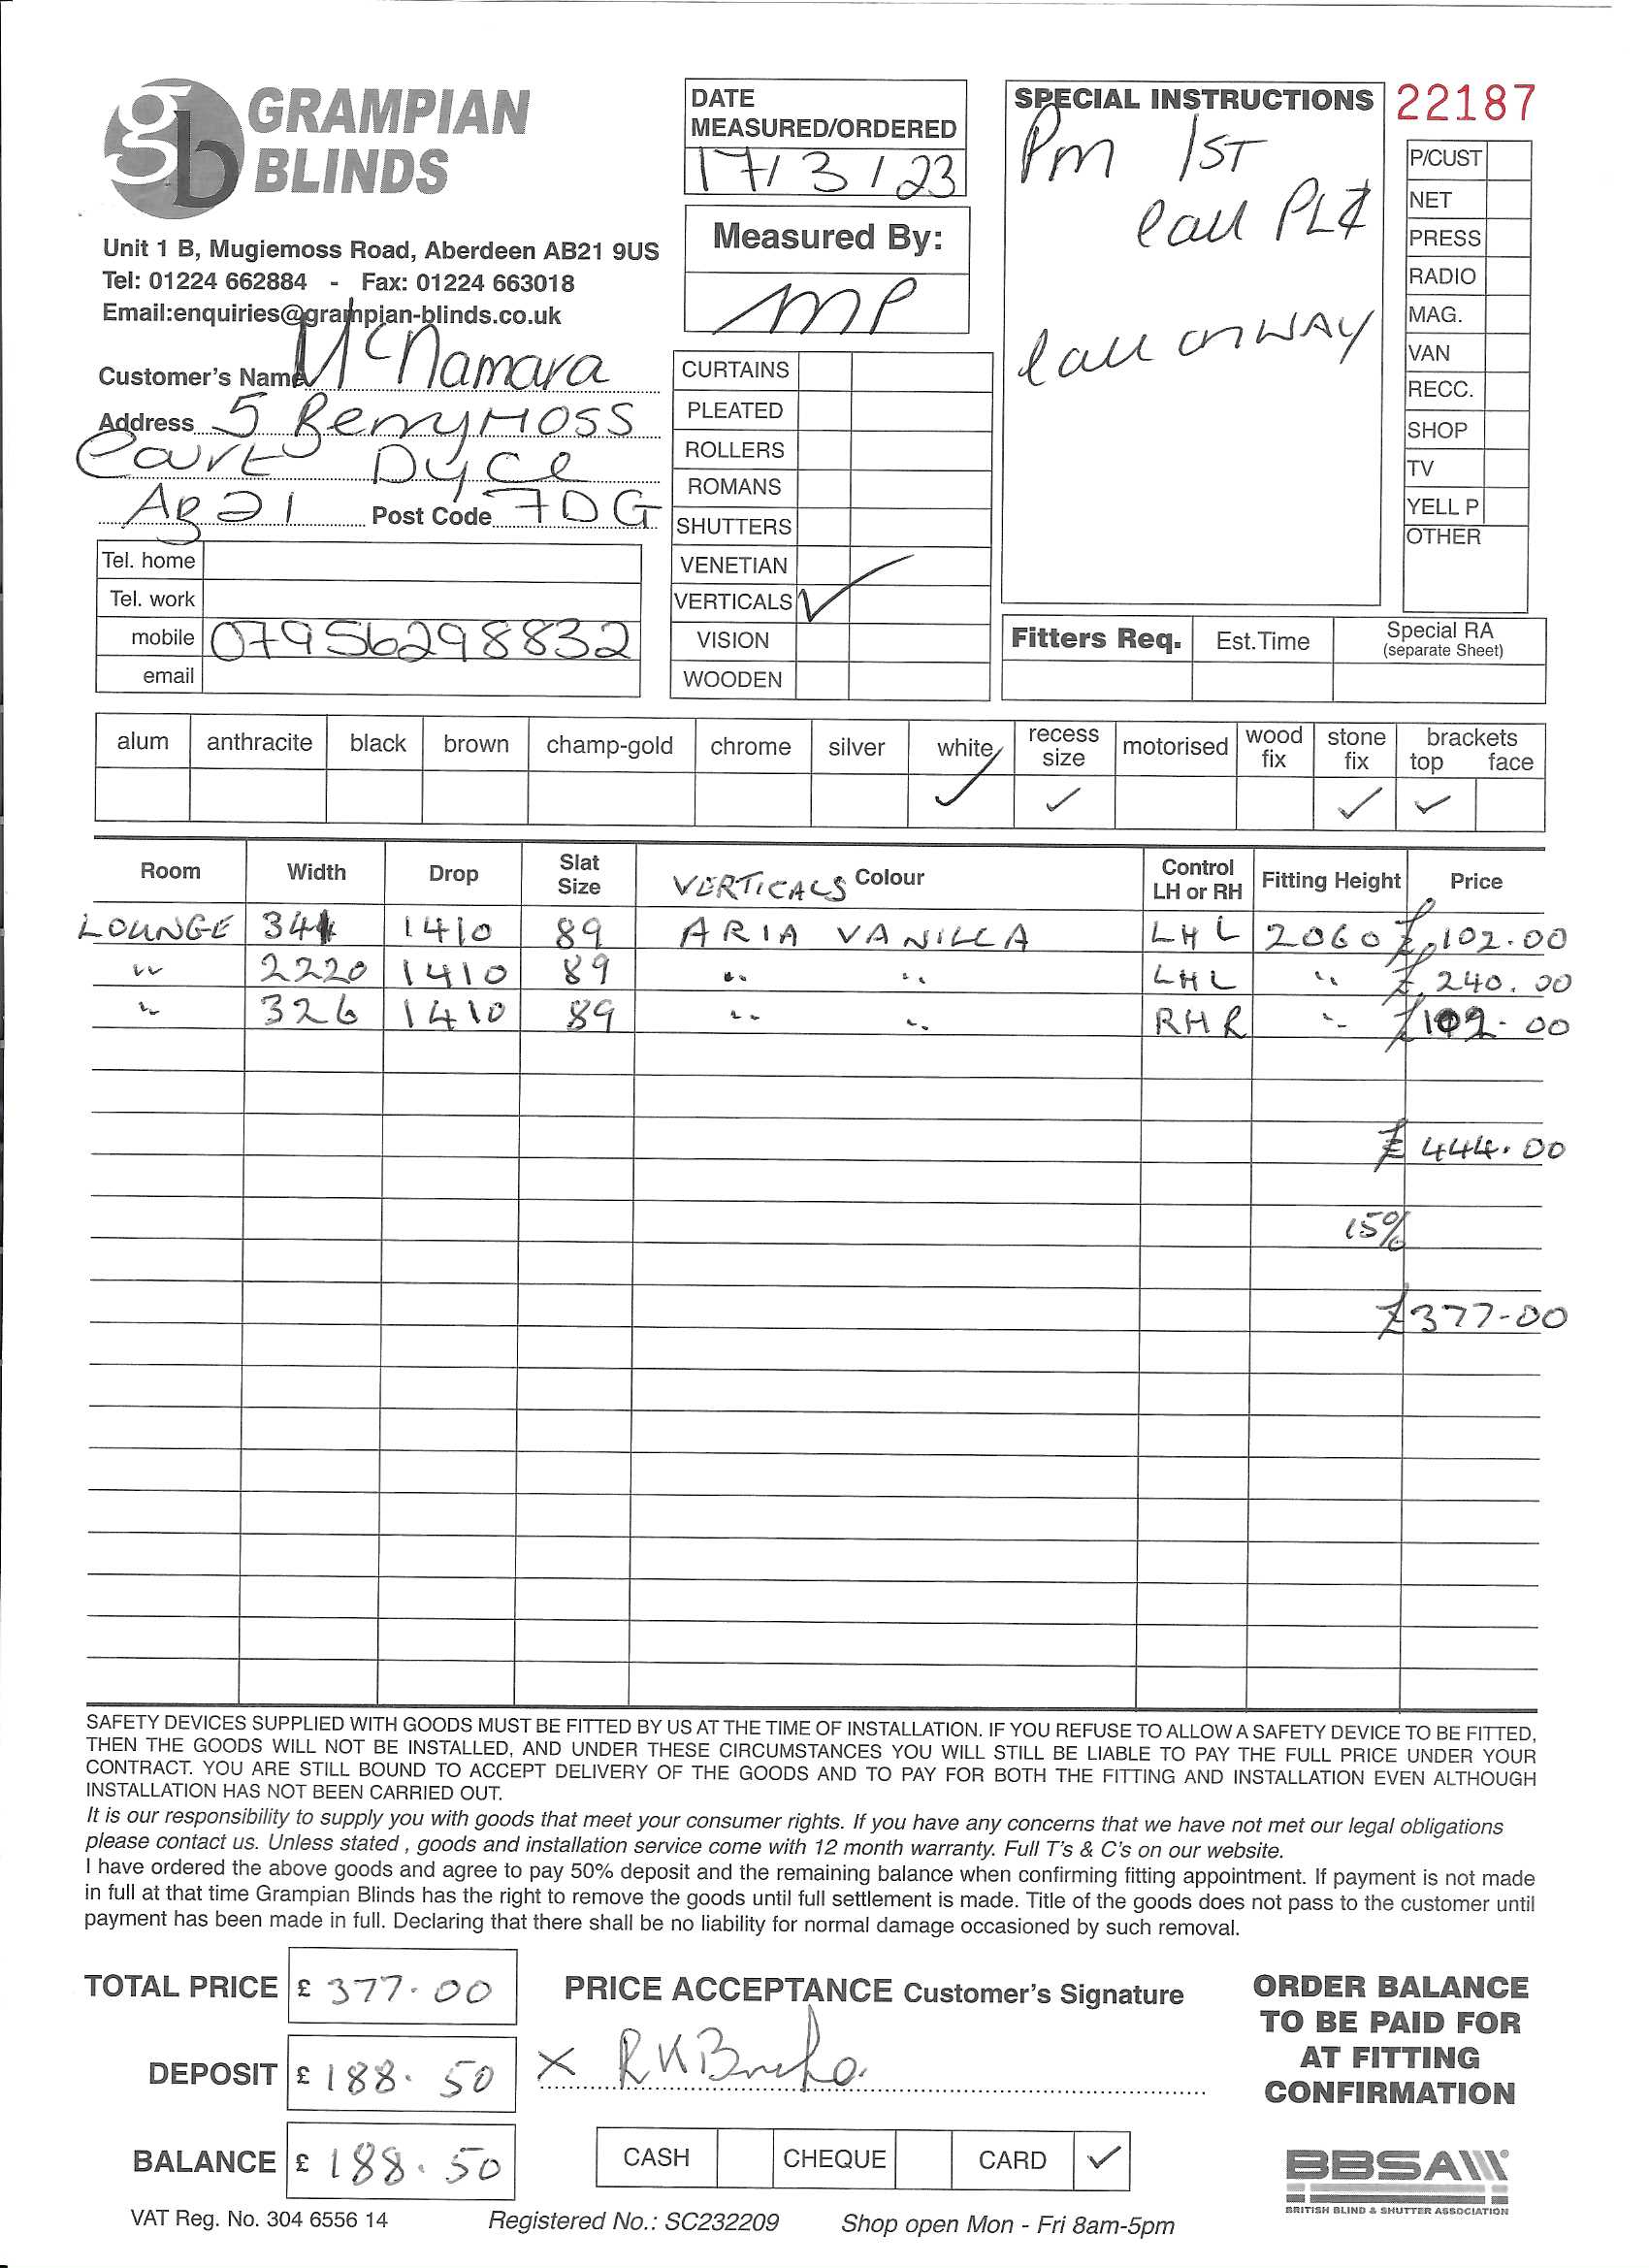 GRAMPIAN
BLINDS
Unit 1 B, Mugiemoss Road, Aberdeen AB21 9US
Tel: 01224 662884 - Fax: 01224 663018
Email:enquiries@grampian-blinds.co.uk
Customer's Name McNamara
Address 5 BerryMoss
Court Dyce
AB21 Post Code 7DG
Tel. home
Tel. work
mobile 07956298832
email
DATE
MEASURED/ORDERED
17/3/23
Measured By:
MP
CURTAINS
PLEATED
ROLLERS
ROMANS
SHUTTERS
VENETIAN
VERTICALS ✓
VISION
WOODEN
SPECIAL INSTRUCTIONS
Pm 1ST
Call PLZ
Call on WAY
22187
P/CUST
NET
PRESS
RADIO
MAG.
VAN
RECC.
SHOP
TV
YELL P
OTHER
Fitters Req. Est.Time Special RA
(separate Sheet)
alum anthracite black brown champ-gold chrome silver white recess size motorised wood fix stone fix brackets top face
✓ ✓ ✓ ✓
Room Width Drop Slat Size VERTICALS Colour Control LH or RH Fitting Height Price
LOUNGE 341 1410 89 ARIA VANILLA LHL 2060 £102.00
" 2220 1410 89 " " LHL " £240.00
" 326 1410 89 " " RHR " £102.00
£444.00
15%
£377-00
SAFETY DEVICES SUPPLIED WITH GOODS MUST BE FITTED BY US AT THE TIME OF INSTALLATION. IF YOU REFUSE TO ALLOW A SAFETY DEVICE TO BE FITTED,
THEN THE GOODS WILL NOT BE INSTALLED, AND UNDER THESE CIRCUMSTANCES YOU WILL STILL BE LIABLE TO PAY THE FULL PRICE UNDER YOUR
CONTRACT. YOU ARE STILL BOUND TO ACCEPT DELIVERY OF THE GOODS AND TO PAY FOR BOTH THE FITTING AND INSTALLATION EVEN ALTHOUGH
INSTALLATION HAS NOT BEEN CARRIED OUT.
It is our responsibility to supply you with goods that meet your consumer rights. If you have any concerns that we have not met our legal obligations
please contact us. Unless stated , goods and installation service come with 12 month warranty. Full T's & C's on our website.
I have ordered the above goods and agree to pay 50% deposit and the remaining balance when confirming fitting appointment. If payment is not made
in full at that time Grampian Blinds has the right to remove the goods until full settlement is made. Title of the goods does not pass to the customer until
payment has been made in full. Declaring that there shall be no liability for normal damage occasioned by such removal.
TOTAL PRICE £ 377.00
DEPOSIT £ 188.50
BALANCE £ 188.50
PRICE ACCEPTANCE Customer's Signature
X
CASH CHEQUE CARD ✓
ORDER BALANCE
TO BE PAID FOR
AT FITTING
CONFIRMATION
BBSA
BRITISH BLIND & SHUTTER ASSOCIATION
VAT Reg. No. 304 6556 14 Registered No.: SC232209 Shop open Mon - Fri 8am-5pm